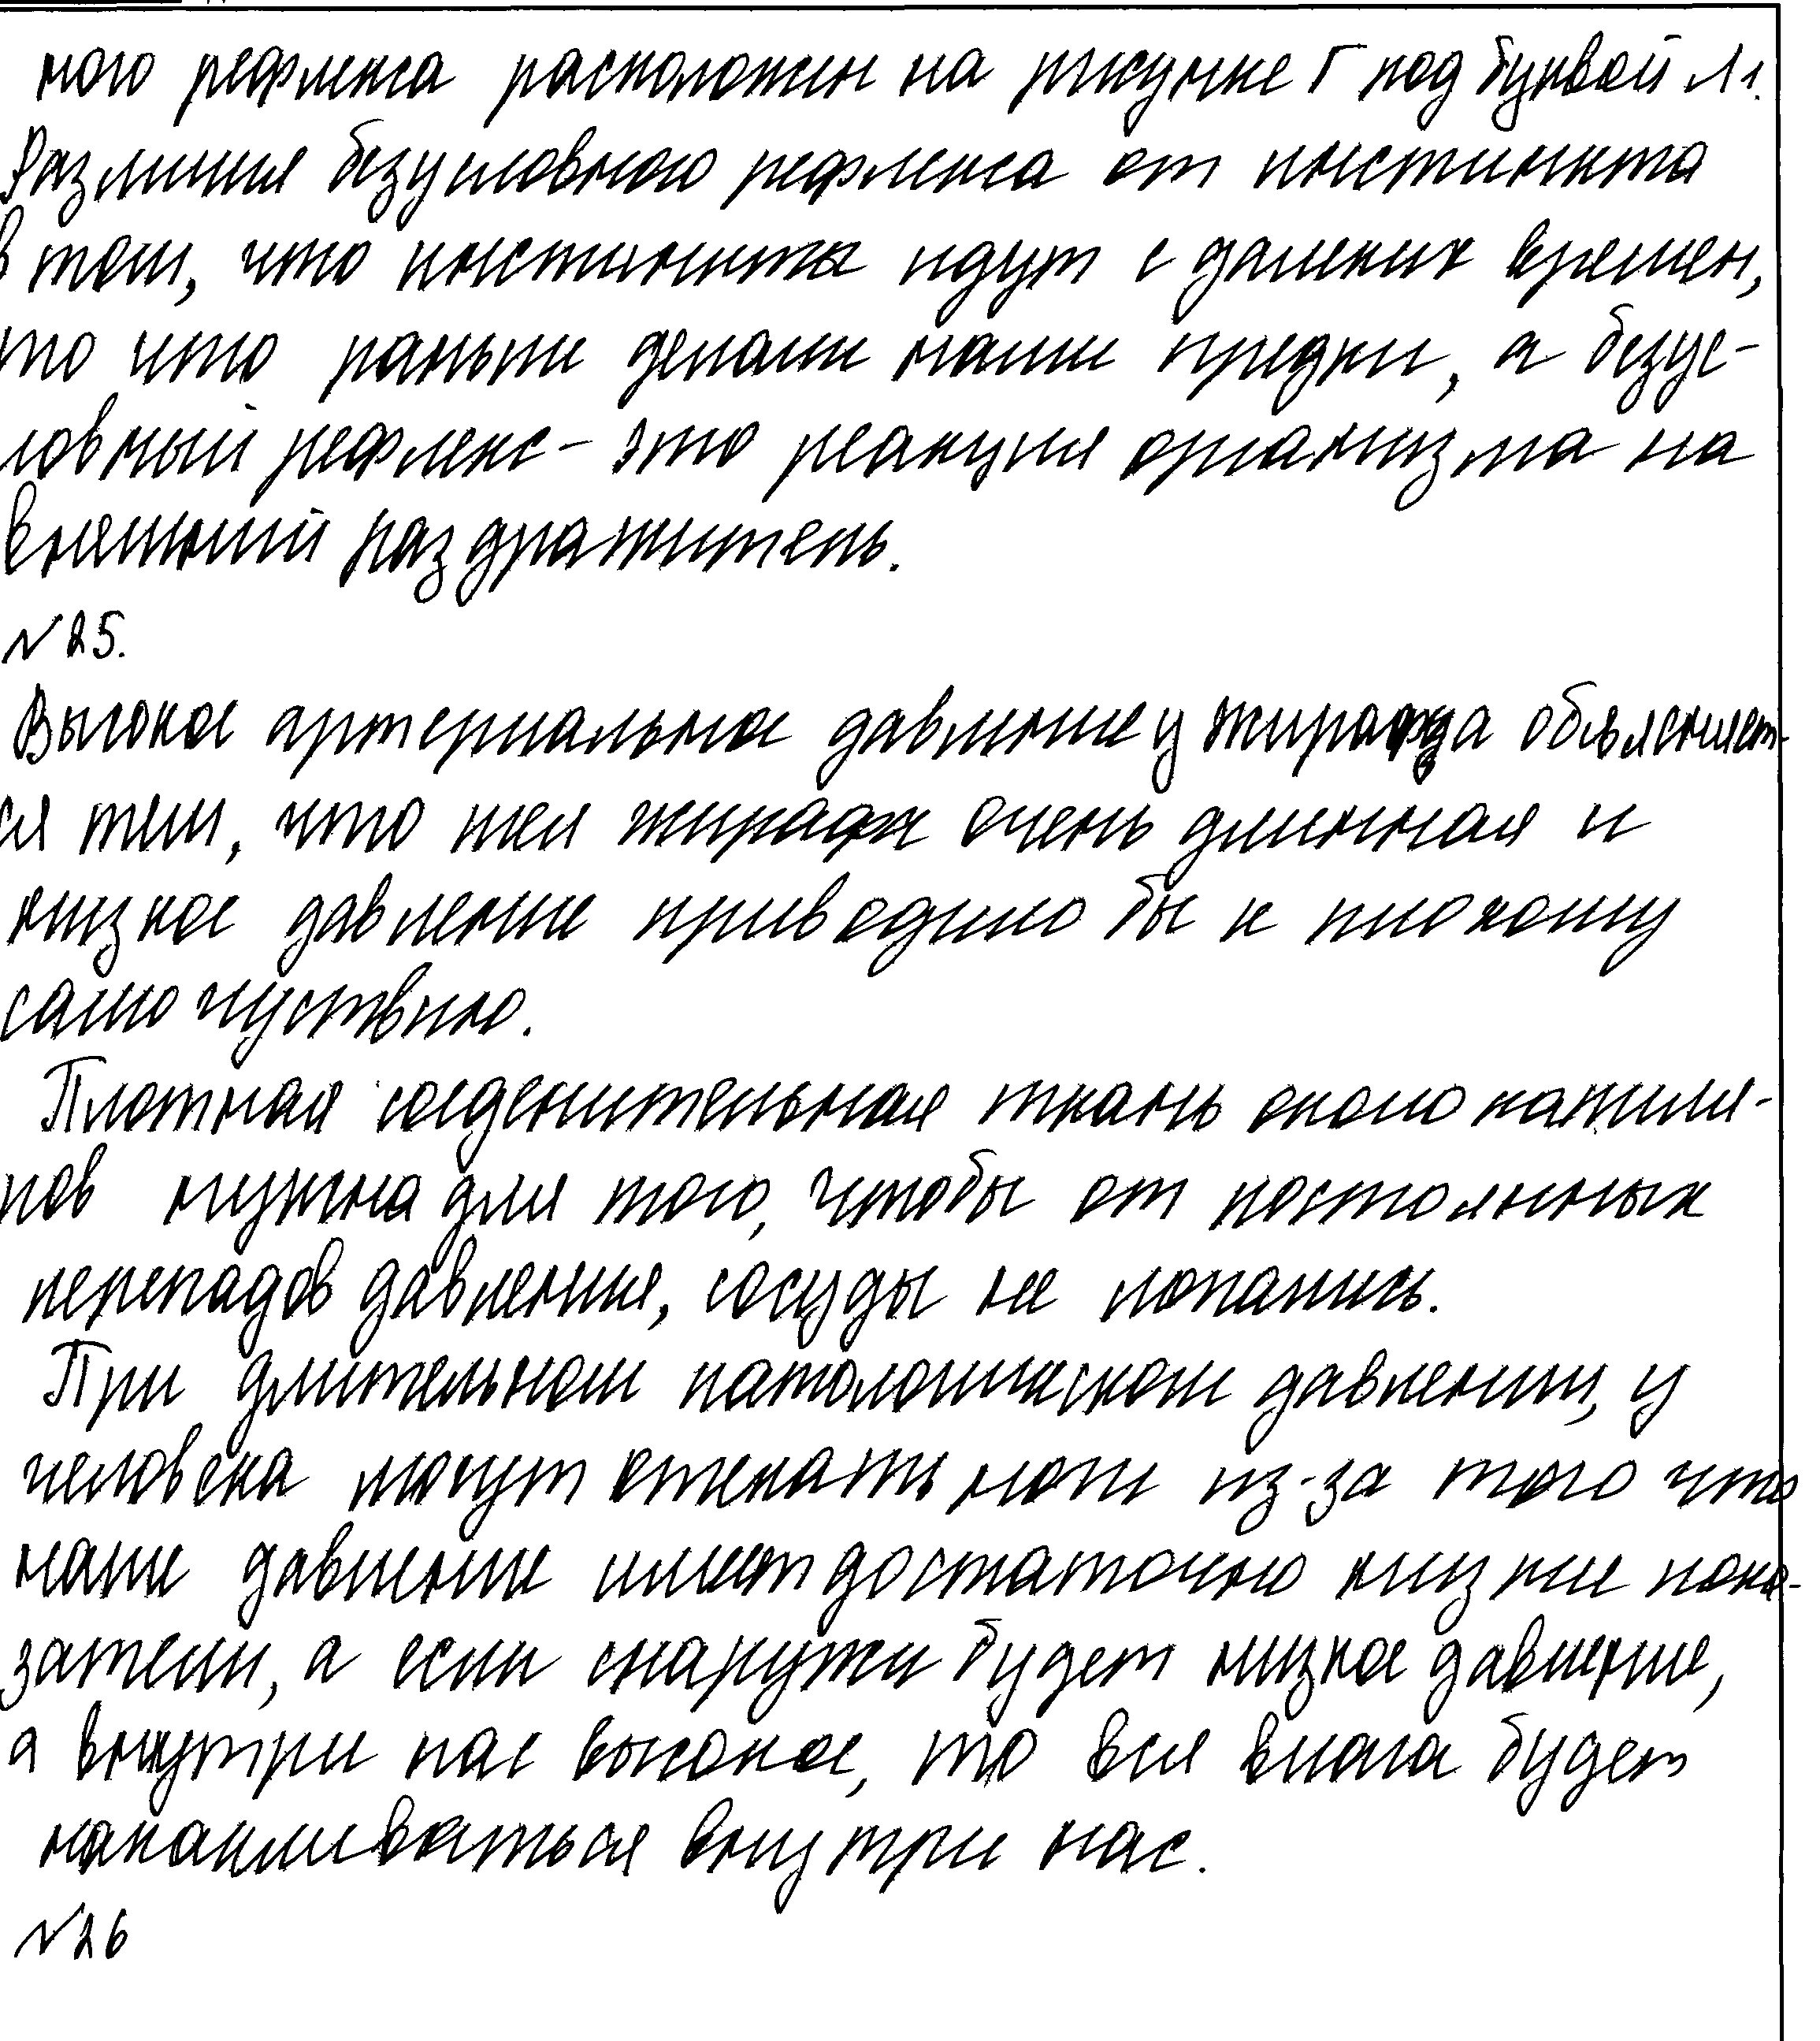 ного рефлекса расположен на рисунке Г под буквой Л1.
Различия безусловного рефлекса от инстинкта
в том, что инстинкты идут с далеких времен,
то что раньше делали наши предки, а безус-
ловный рефлекс - это реакция организма на
внешний раздражитель.
№25.
Высокое артериальное давление у жирафа объясняет-
ся тем, что шея жирафа очень длинная и
низкое давление приводило бы к плохому
самочуствию.
Плотная соеденительная ткань около капиля-
ров нужна для того, чтобы от постоянных
перепадов давления, сосуды не лопались.
При длительном патологическом давлении, у
человека могут отекать ноги из-за того что
наше давление имеет достаточно низкие пока-
затели, а если снаружи будет низкое давление,
а внутри нас высокое, то вся влага будет
накапливаться внутри нас.
№26